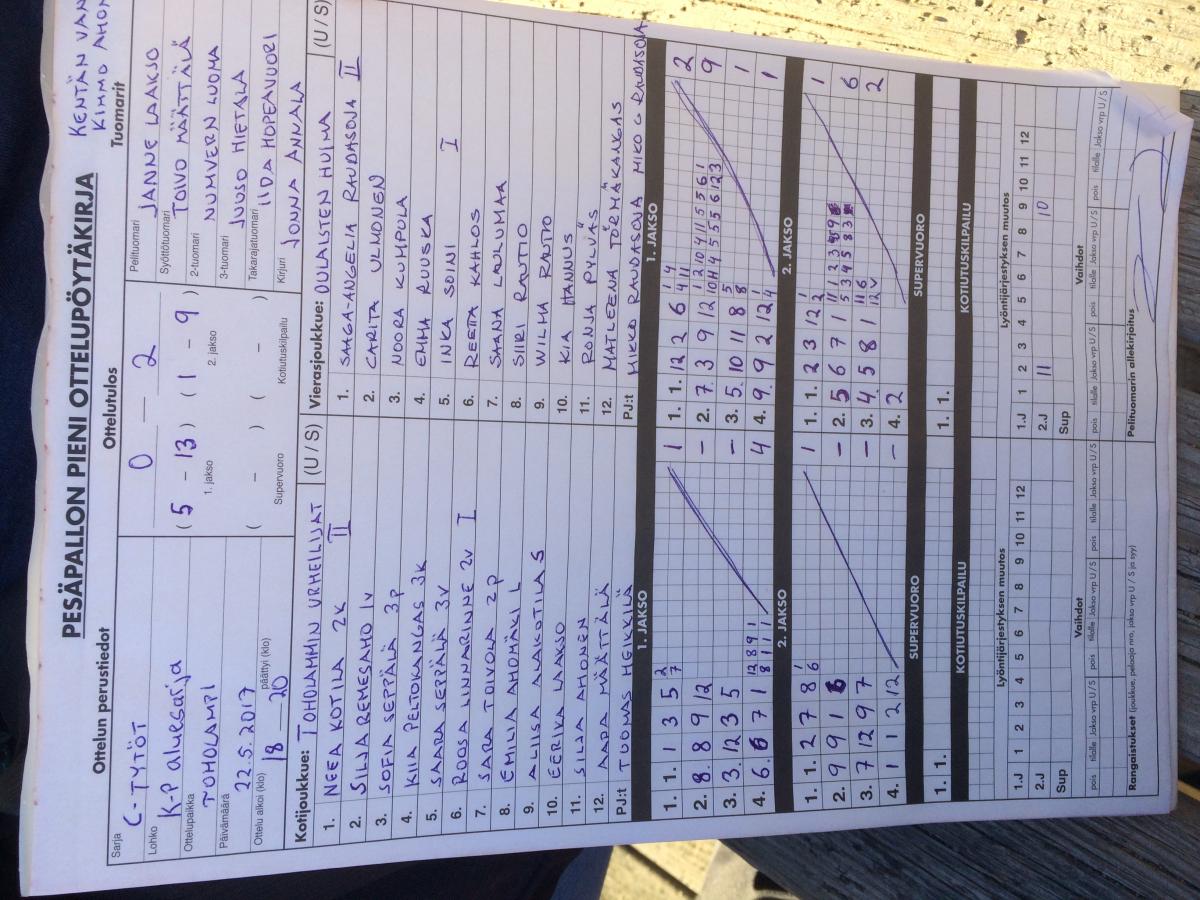 KENTÄN VAN
KIMMO AHO
PESÄPALLON PIENI OTTELUPÖYTÄKIRJA
Ottelun perustiedot
Sarja
C-TYTÖT
Lohko
K-P aluesarja
Ottelupaikka
TOHOLAMPI
Päivämäärä
22.5.2017
Ottelu alkoi (klo) päättyi (klo)
18 20
Ottelutulos
0 — 2
( 5 – 13 ) ( 1 – 9 )
1. jakso 2. jakso
( – ) ( – )
Supervuoro Kotiutuskilpailu
Tuomarit
Pelituomari
JANNE LAAKSO
Syöttötuomari
TOIVO MÄÄTTÄLÄ
2-tuomari
NUMMVERN LUOMA
3-tuomari
JUUSO HIETALA
Takarajatuomari
IIDA HOPEAVUORI
Kirjuri
JONNA ANNALA
Kotijoukkue: TOHOLAMMIN URHEILIJAT (U / S)
1. NEEA KOTILA 2K II
2. SILJA REMESAHO 1V
3. SOFIA SEPPÄLÄ 3P
4. KIIA PELTOKANGAS 3K
5. SAARA SEPPÄLÄ 3V
6. ROOSA LINNARINNE 2V I
7. SARA TOIVOLA 2P
8. EMILIA AHOMÄKI L
9. ALIISA ALAKOTILA S
10. EERIKA LAAKSO
11. SILJA AHONEN
12. AADA MÄÄTTÄLÄ
PJ:t TUOMAS HEIKKILÄ
Vierasjoukkue: OULAISTEN HUIMA (U / S)
1. SAAGA-ANGELIA RAUDASOJA II
2. CARITA ULMONEN
3. NOORA KUMPULA
4. EMMA RUUSKA
5. INKA SOINI I
6. REETA KAHLOS
7. SAANA LAULUMAA
8. SIIRI RAUTIO
9. WILMA RAUTIO
10. KIA HANNUS
11. RONJA PYLVÄS
12. MATLEENA TÖRMÄKANGAS
PJ:t MIKKO RAUDASOJA MIKO RAUDASOJA
1. JAKSO
1. 1. 1 3 5 2 7 1
2. 8. 8 9 12 –
3. 3. 12 3 5 –
4. 6. 6 7 1 12 8 9 1 8 1 1 1 4
2. JAKSO
1. 1. 2 7 8 1 6 1
2. 9 9 1 6 –
3. 7 12 9 7 –
4. 1 1 2 12 –
SUPERVUORO
1. 1.
KOTIUTUSKILPAILU
1. JAKSO
1. 1. 12 2 6 1 4 4 11 2
2. 7. 3 9 12 1 2 10 4 11 5 5 6 1 10 11 4 5 5 6 12 3 9
3. 5. 10 11 8 5 8 1
4. 9. 9 2 12 1 4 1
2. JAKSO
1. 1. 2 3 12 1 2 1
2. 5 6 7 1 11 1 2 3 4 9 5 3 4 5 8 3 6
3. 4 5 8 1 11 6 12 V 2
4. 2
SUPERVUORO
1. 1.
KOTIUTUSKILPAILU
Lyöntijärjestyksen muutos
1 2 3 4 5 6 7 8 9 10 11 12
1.J
2.J
Sup
Vaihdot
pois tilalle Jakso vrp U / S pois tilalle Jakso vrp U / S
Rangaistukset (joukkue, pelaaja nro, jakso vrp U / S ja syy)
Lyöntijärjestyksen muutos
1 2 3 4 5 6 7 8 9 10 11 12
1.J
2.J 11 10
Sup
Vaihdot
pois tilalle Jakso vrp U / S pois tilalle Jakso vrp U / S
Pelituomarin allekirjoitus